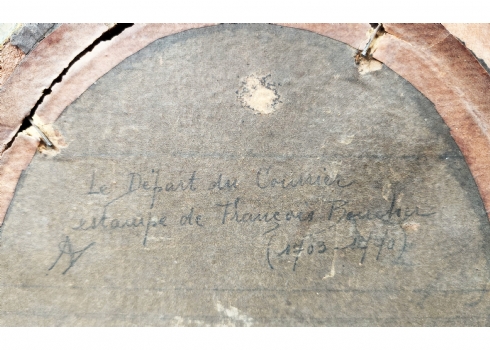 Le Départ du Courrier
estampe de François Boucher
(1703-1770)